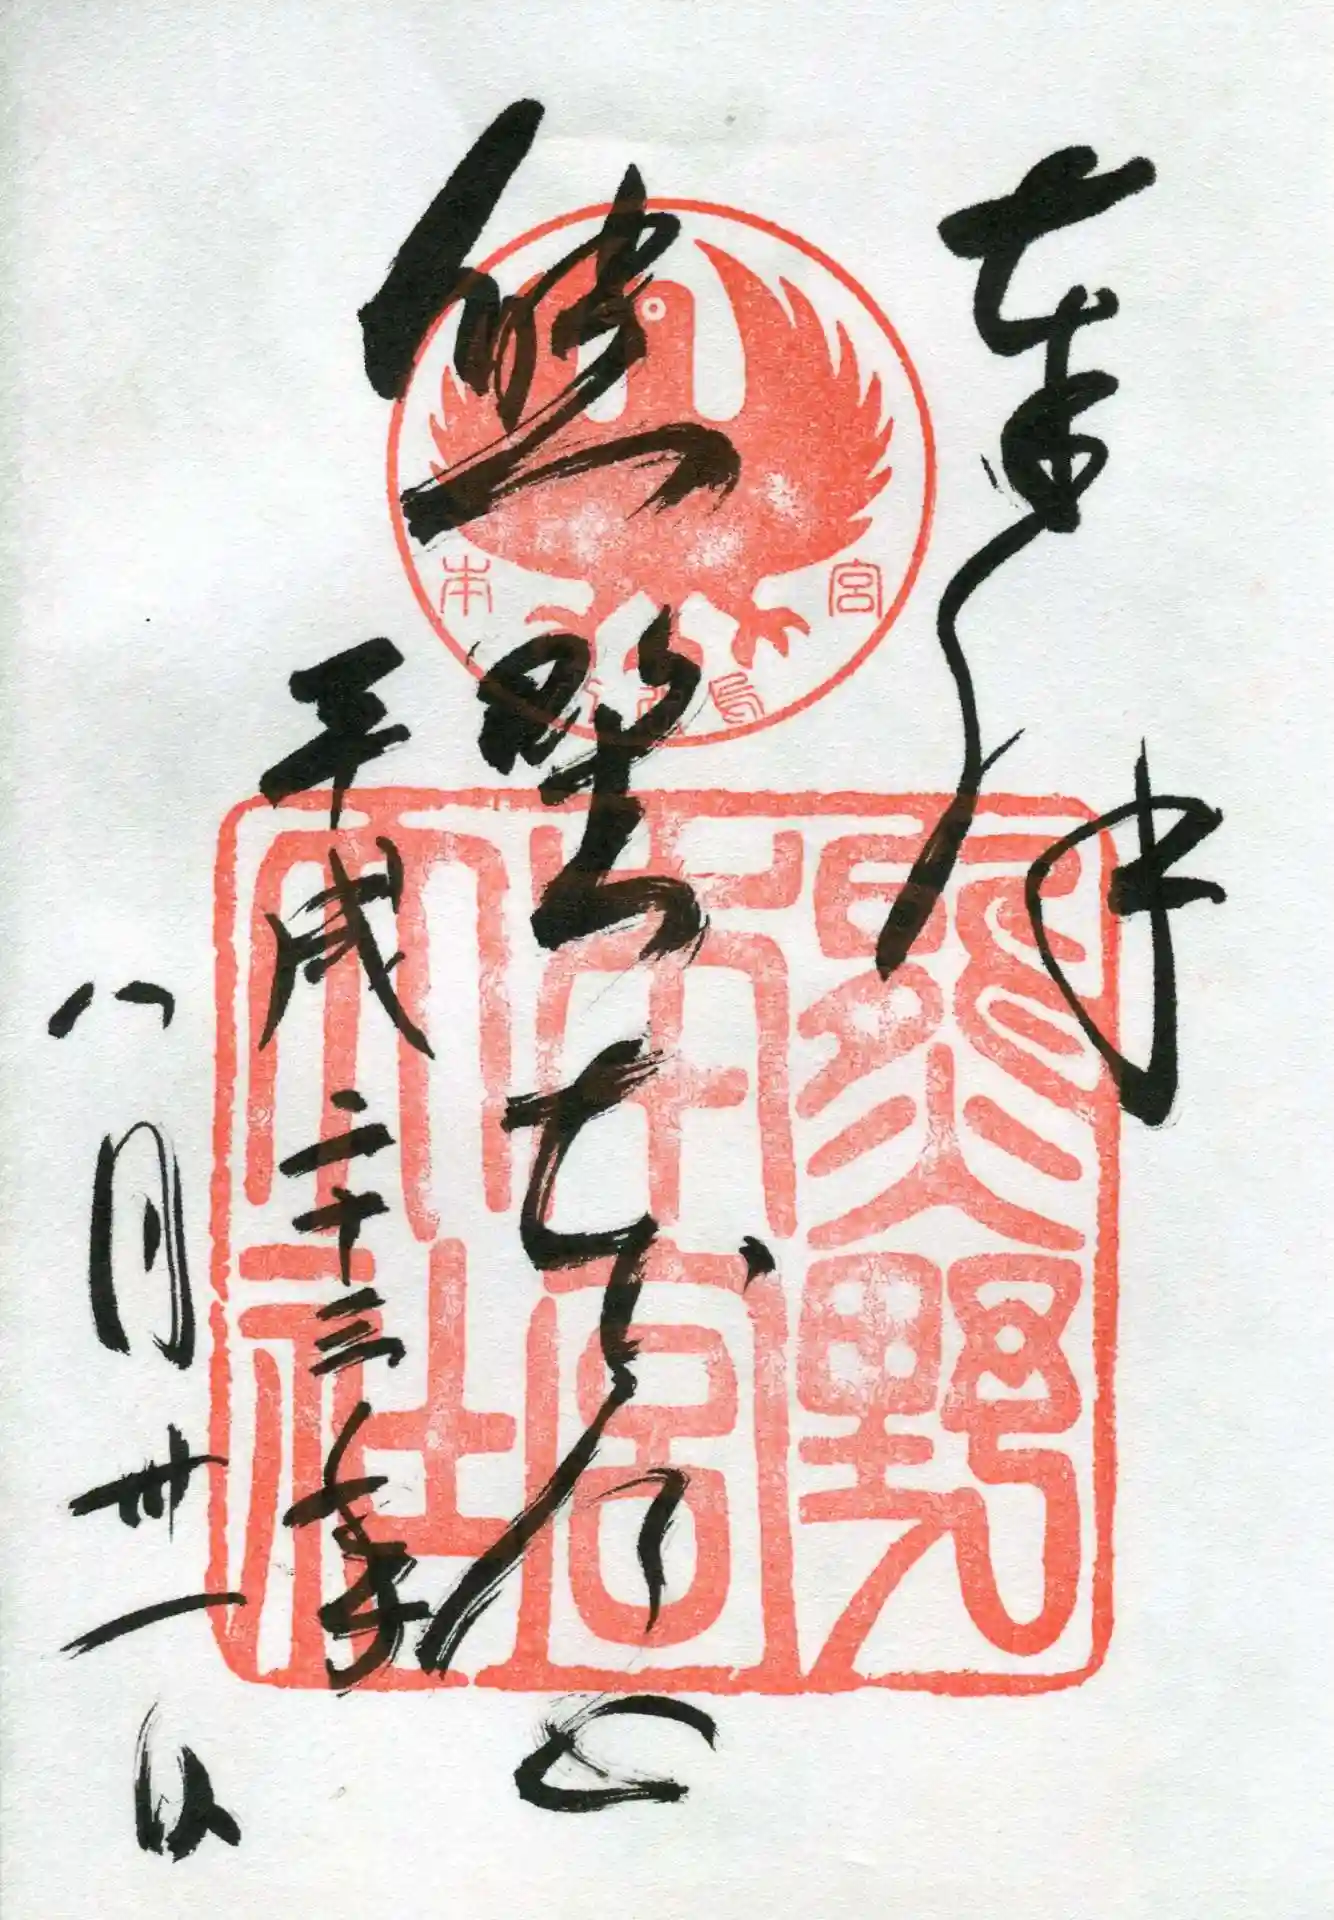 奉拝
熊野本宮
平成二十三年
八月卅一日
本宮
八咫烏
熊野
本宮
大社